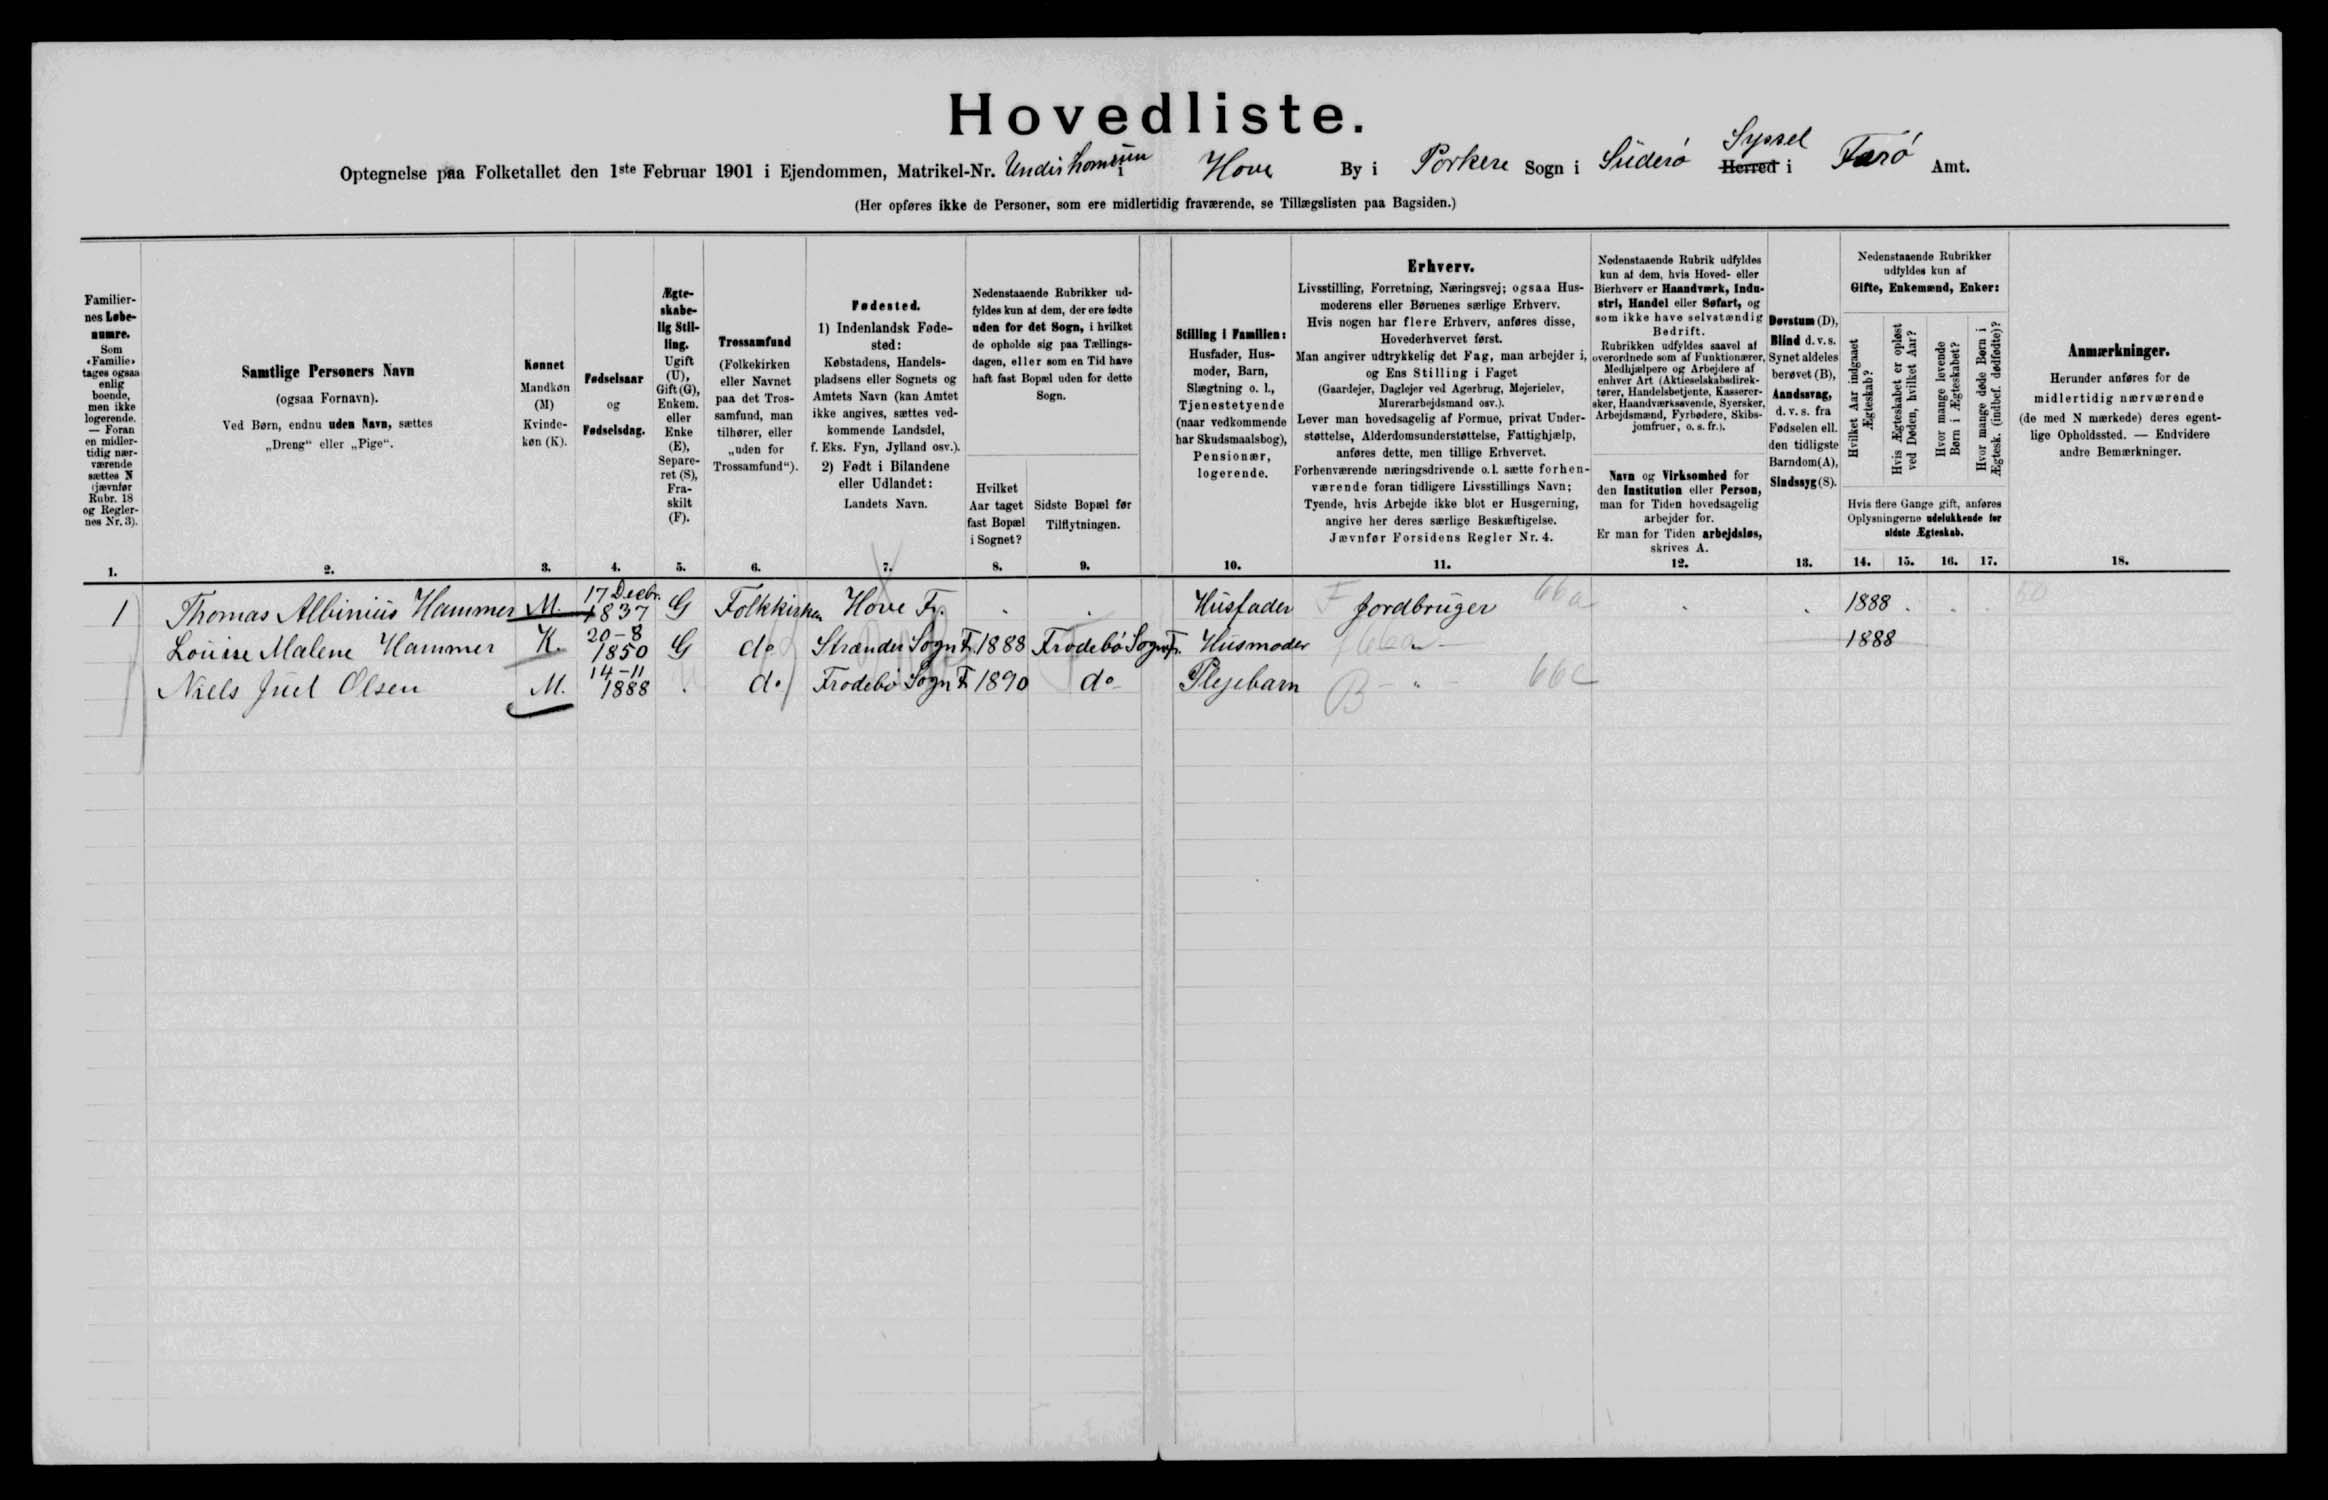 Hovedliste.
Optegnelse paa Folketallet den 1ste Februar 1901 i Ejendommen, Matrikel-Nr. i Hove By i Porkere Sogn i Süderö Herred Syssel i Færö Amt.
(Her opføres ikke de Personer, som ere midlertidig fraværende, se Tillægslisten paa Bagsiden.)
Familier-
nes Løbe-
numre.
Som
«Familie»
tages ogsaa
enlig
boende,
men ikke
logerende.
— Foran
en midler-
tidig nær-
værende
sættes N
(jævnfør
Rubr. 18
og Regler-
nes Nr. 3).
1.
Samtlige Personers Navn
(ogsaa Fornavn).
Ved Børn, endnu uden Navn, sættes
„Dreng“ eller „Pige“.
2.
Kønnet
Mandkøn
(M)
Kvinde-
køn (K).
3.
Fødselsaar
og
Fødselsdag.
4.
Ægte-
skabe-
lig Stil-
ling.
Ugift
(U),
Gift (G),
Enkem.
eller
Enke
(E),
Separe-
ret (S),
Fra-
skilt
(F).
5.
Trossamfund
(Folkekirken
eller Navnet
paa det Tros-
samfund, man
tilhører, eller
„uden for
Trossamfund“).
6.
Fødested.
1) Indenlandsk Føde-
sted:
Købstadens, Handels-
pladsens eller Sognets og
Amtets Navn (kan Amtet
ikke angives, sættes ved-
kommende Landsdel,
f. Eks. Fyn, Jylland osv.).
2) Født i Bilandene
eller Udlandet:
Landets Navn.
7.
Nedenstaaende Rubrikker ud-
fyldes kun af dem, der ere fødte
uden for det Sogn, i hvilket
de opholde sig paa Tællings-
dagen, eller som en Tid have
haft fast Bopæl uden for dette
Sogn.
Hvilket
Aar taget
fast Bopæl
i Sognet?
8.
Sidste Bopæl før
Tilflytningen.
9.
Stilling i Familien:
Husfader, Hus-
moder, Barn,
Slægtning o. l.,
Tjenestetyende
(naar vedkommende
har Skudsmaalsbog),
Pensionær,
logerende.
10.
Erhverv.
Livsstilling, Forretning, Næringsvej; ogsaa Hus-
moderens eller Børnenes særlige Erhverv.
Hvis nogen har flere Erhverv, anføres disse,
Hovederhvervet først.
Man angiver udtrykkelig det Fag, man arbejder i,
og Ens Stilling i Faget
(Gaardejer, Daglejer ved Agerbrug, Mejerielev,
Murerarbejdsmand osv.).
Lever man hovedsagelig af Formue, privat Under-
støttelse, Alderdomsunderstøttelse, Fattighjælp,
anføres dette, men tillige Erhvervet.
Forhenværende næringsdrivende o. l. sætte forhen-
værende foran tidligere Livsstillings Navn;
Tyende, hvis Arbejde ikke blot er Husgerning,
angive her deres særlige Beskæftigelse.
Jævnfør Forsidens Regler Nr. 4.
11.
Nedenstaaende Rubrik udfyldes
kun af dem, hvis Hoved- eller
Bierhverv er Haandværk, Indu-
stri, Handel eller Søfart, og
som ikke have selvstændig
Bedrift.
Rubrikken udfyldes saavel af
overordnede som af Funktionærer,
Medhjælpere og Arbejdere af
enhver Art (Aktieselskabsdirek-
tører, Handelsbetjente, Kasserer-
sker, Haandværkssvende, Syersker,
Arbejdsmænd, Fyrbødere, Skibs-
jomfruer, o. s. fr.).
Navn og Virksomhed for
den Institution eller Person,
man for Tiden hovedsagelig
arbejder for.
Er man for Tiden arbejdsløs,
skrives A.
12.
Døvstum (D),
Blind d. v. s.
Synet aldeles
berøvet (B),
Aandssvag,
d. v. s. fra
Fødselen ell.
den tidligste
Barndom (A),
Sindssyg (S).
13.
Nedenstaaende Rubrikker
udfyldes kun af
Gifte, Enkemænd, Enker:
Hvilket Aar indgaaet
Ægteskab?
Hvis Ægteskabet er opløst
ved Døden, hvilket Aar?
Hvor mange levende
Børn i Ægteskabet?
Hvor mange døde Børn i
Ægtesk. (indbef. dødfødte)?
Hvis flere Gange gift, anføres
Oplysningerne udelukkende for
sidste Ægteskab.
14. 15. 16. 17.
Anmærkninger.
Herunder anføres for de
midlertidig nærværende
(de med N mærkede) deres egent-
lige Opholdssted. — Endvidere
andre Bemærkninger.
18.
1 Thomas Albinius Hammer M. 17 Decbr. 1837 G Folkkirken Hove Fr. . . Husfader F Jordbruger 66a . . 1888 . . .
Louise Malene Hammer K. 20-8 1850 G do Strander Sogn Fr. 1888 Frodebö Sogn Fr. Husmoder 66a - " - 1888
Niels Juel Olsen M. 14-11 1888 . do Frodebö Sogn Fr 1890 do Plejebarn B - " - 66c